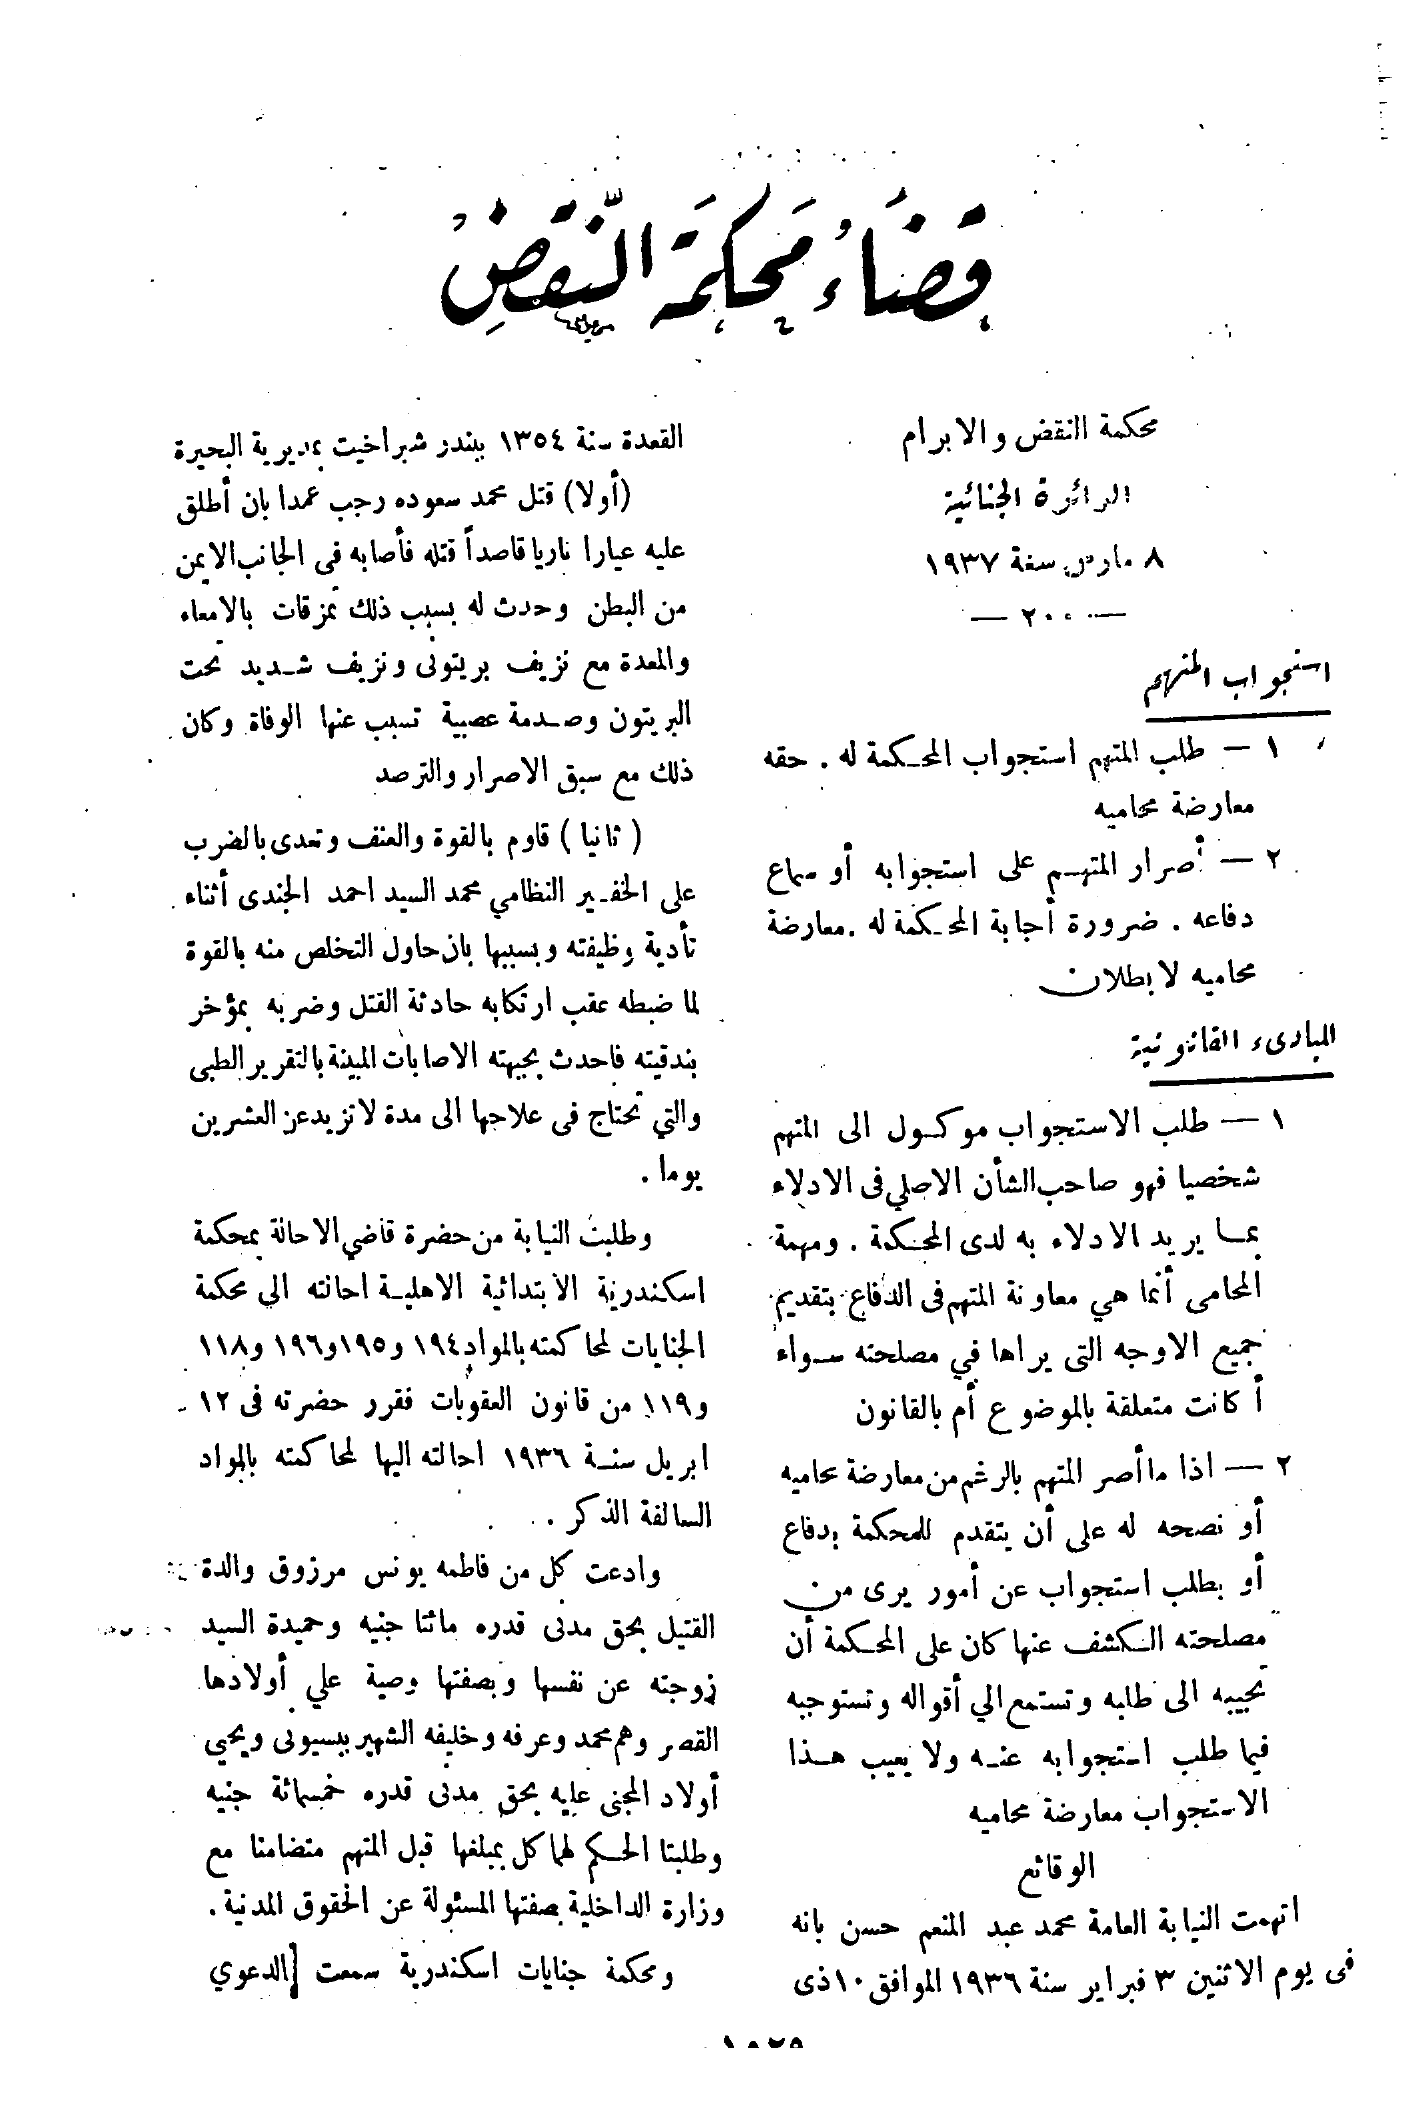 قضاء محكمة النقض
محكمة النقض والابرام
الدائرة الجنائية
٨ مارس سنة ١٩٣٧
— ٢٠٠ —
استجواب المتهم
١ — طلب المتهم استجواب المحكمة له . حقه
معارضة محاميه
٢ — أصرار المتهم على استجوابه أو سماع
دفاعه . ضرورة أجابة المحكمة له . معارضة
محاميه لا بطلان
المبادىء القانونية
١ — طلب الاستجواب موكول الى المتهم
شخصيا فهو صاحب الشأن الاصلي فى الادلاء
بما يريد الادلاء به لدى المحكمة . ومهمة
المحامى أنما هي معاونة المتهم فى الدفاع بتقديم
جميع الاوجه التى يراها في مصلحته سواء
أكانت متعلقة بالموضوع أم بالقانون
٢ — اذا ما أصر المتهم بالرغم من معارضة محاميه
أو نصحه له على أن يتقدم للمحكمة بدفاع
أو بطلب استجواب عن أمور يرى من
مصلحته الكشف عنها كان على المحكمة أن
تجيبه الى طلبه وتستمع الي أقواله وتستوجبه
فيما طلب استجوابه عنه ولا يعيب هذا
الاستجواب معارضة محاميه
الوقائع
اتهمت النيابة العامة محمد عبد المنعم حسن بانه
فى يوم الاثنين ٣ فبراير سنة ١٩٣٦ الموافق ١٠ ذى
القعدة سنة ١٣٥٤ ببندر شبراخيت بمديرية البحيرة
(أولا) قتل محمد سعوده رجب عمدا بان أطلق
عليه عيارا ناريا قاصداً قتله فأصابه فى الجانب الايمن
من البطن وحدث له بسبب ذلك تمزقات بالامعاء
والمعدة مع نزيف بريتونى ونزيف شديد تحت
البريتون وصدمة عصبية تسبب عنها الوفاة وكان
ذلك مع سبق الاصرار والترصد
(ثانيا) قاوم بالقوة والعنف وتعدى بالضرب
على الخفير النظامي محمد السيد احمد الجندى أثناء
تأدية وظيفته وبسببها بان حاول التخلص منه بالقوة
لما ضبطه عقب ارتكابه حادثة القتل وضربه بمؤخر
بندقيته فاحدث بجبهته الاصابات المبينة بالتقرير الطبى
والتي تحتاج فى علاجها الى مدة لا تزيد عن العشرين
يوما .
وطلبت النيابة من حضرة قاضي الاحالة بمحكمة
اسكندرية الابتدائية الاهلية احالته الي محكمة
الجنايات لمحاكمته بالمواد ١٩٤ و١٩٥ و١٩٦ و١١٨
و١١٩ من قانون العقوبات فقرر حضرته فى ١٢
ابريل سنة ١٩٣٦ احالته اليها لمحاكمته بالمواد
السالفة الذكر .
وادعت كل من فاطمه يونس مرزوق والدة
القتيل بحق مدنى قدره مائتا جنيه وحميدة السيد
زوجته عن نفسها وبصفتها وصية علي أولادها
القصر وهم محمد وعرفه وخليفه الشهير ببسيونى ويحيي
أولاد المجنى عليه بحق مدنى قدره خمسمائة جنيه
وطلبتا الحكم لهما كل بمبلغها قبل المتهم متضامنا مع
وزارة الداخلية بصفتها المسئولة عن الحقوق المدنية .
ومحكمة جنايات اسكندرية سمعت الدعوي